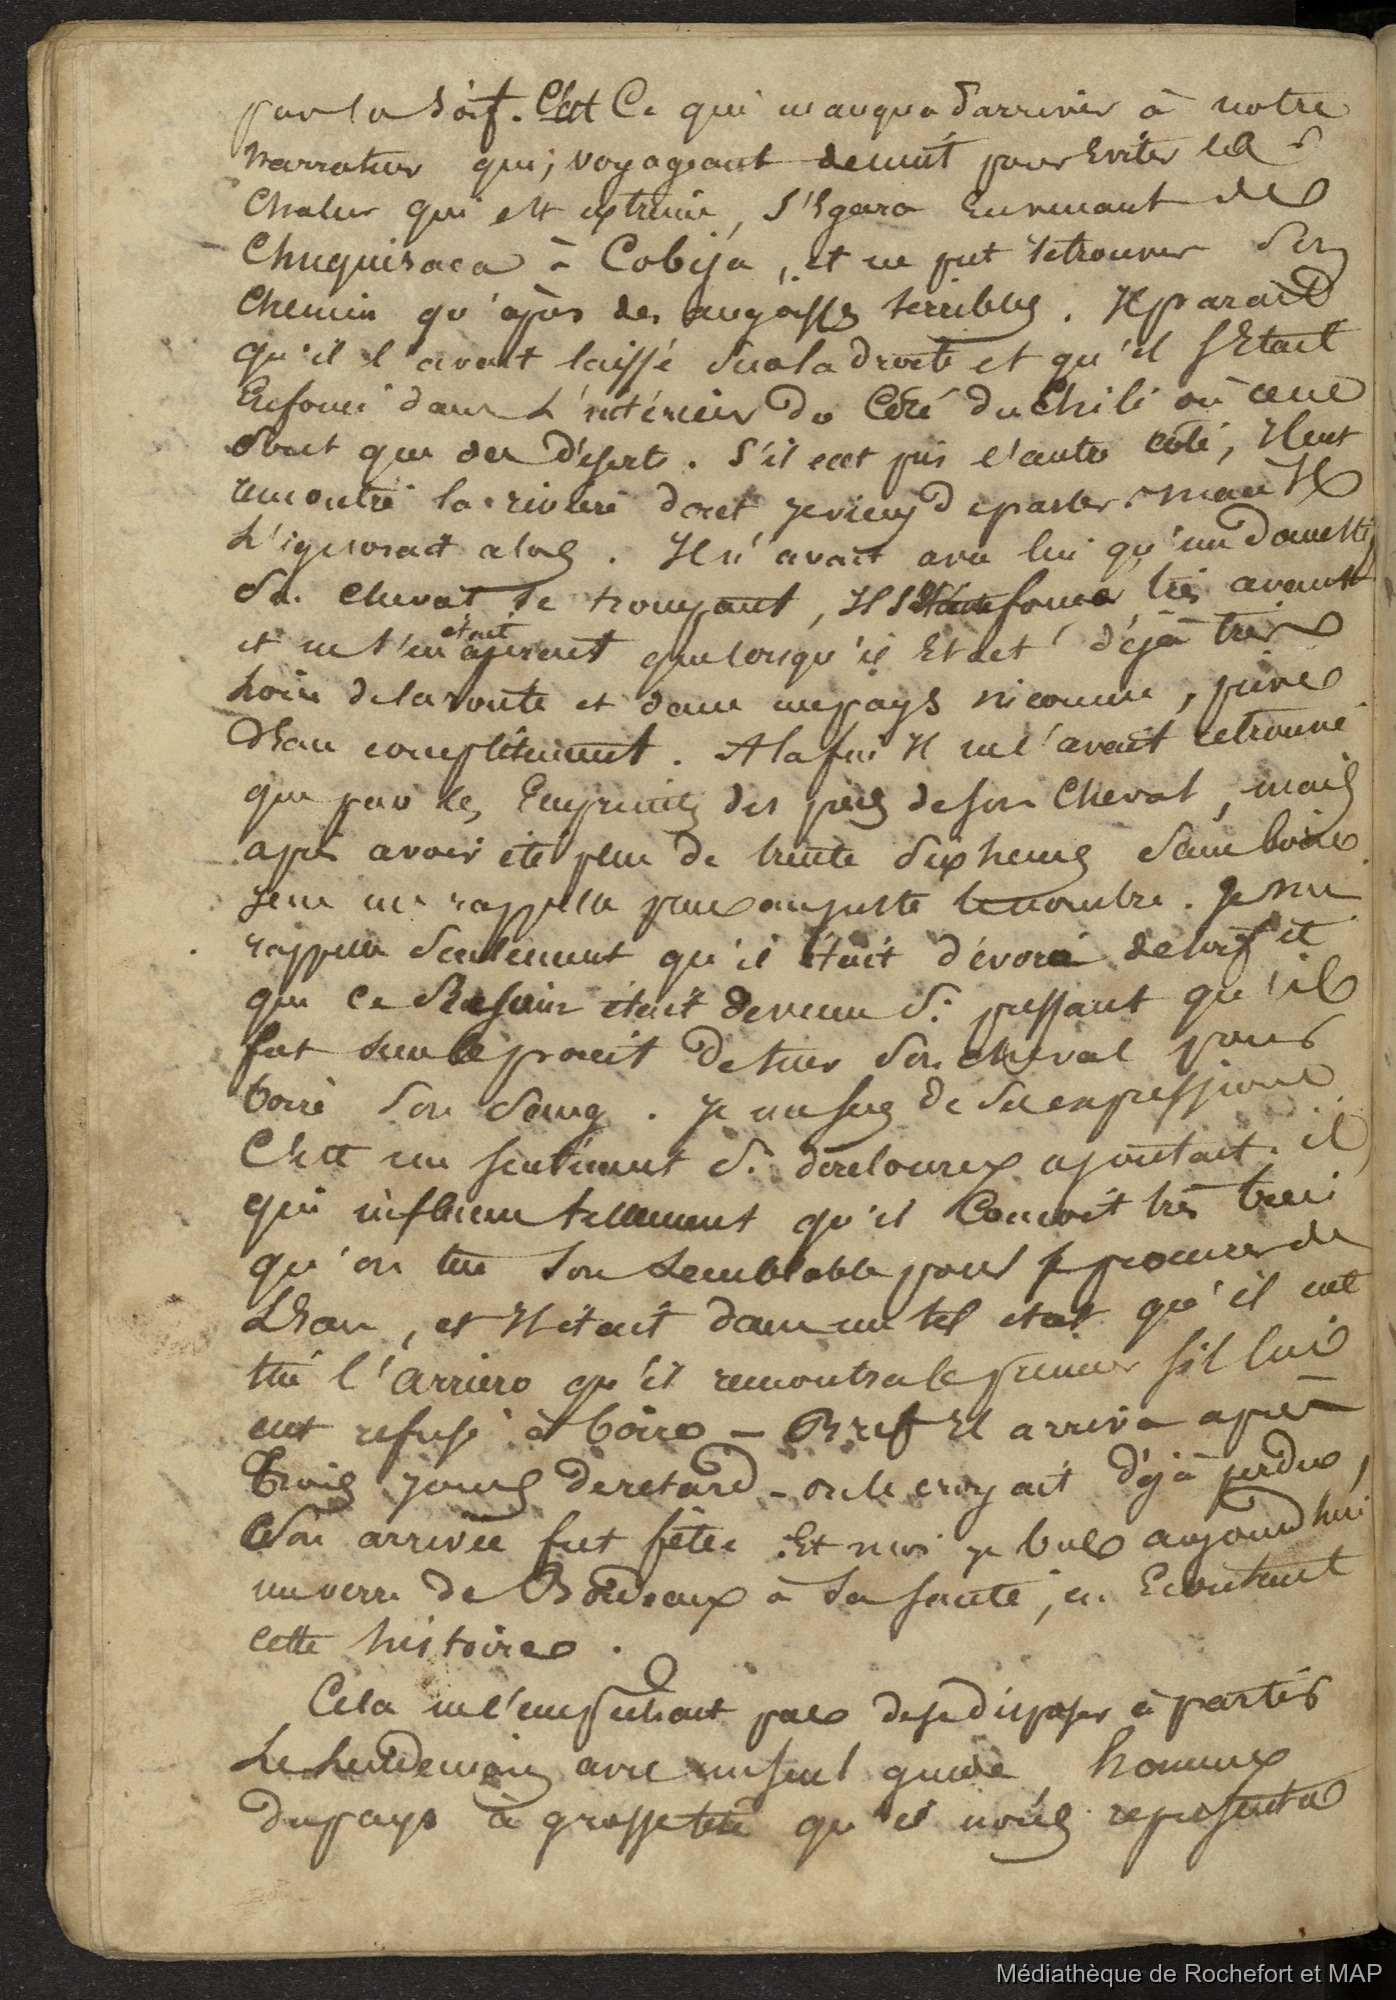 par la soif. C'est Ce qui manqua d'arriver à notre
narrateur qui, voyageant de nuit pour Eviter la
Chaleur qui est extrême, s'Egara En venant de
Chuquisaca à Cobija, et ne put retrouver son
Chemin qu'après des angoisses terribles. Il parait
qu'il l'avait laissé sur la droite et qu'il s'Etait
Enfoui dans L'intérieur du Côté du Chili où ce ne
sont que des déserts. S'il eut pris l'autre coté, Il eut
rencontré la rivière dont je viens de parler. mais Il
L'ignorait alors. Il n'avait avec lui qu'un domestique
Son cheval se trompant, Il s'enfonça très avant
et ne s'en était aperçut que lorsqu'il Etait déjà très
Loin de la route et dans un pays inconnu, privé
d'Eau complètement. A la fin Il ne l'avait retrouvé
que par les Empreintes des pas de son Cheval, mais
après avoir été plus de trente six heures sans boire
Je ne me rappelle pas au juste le nombre. Je me
rappelle Seulement qu'il était dévoré de soif et
que ce Besoin était devenu si pressant qu'il
fut sur le point de tuer son cheval pour
boire son sang. Je me sers de ses expressions
C'est un sentiment si douloureux ajoutait-il
qui influence tellement qu'il Conçoit très bien
qu'on tue son semblable pour se procurer de
L'Eau, et Il était dans un tel état qu'il eut
tué l'Arriero qu'il rencontra le premier s'il lui
eut refusé à boire - Bref Il arriva après
Trois jours de retard - on le croyait déjà perdu,
Son arrivée fut fêtée. Et moi je bus aujourd'hui
un verre de Bordeaux à sa santé, en Ecoutant
cette histoire.
Cela ne l'empêchait pas de se disposer à partir
Le Lendemain avec un seul guide, homme
du pays à grosse tête qu'il nous représenta
Médiathèque de Rochefort et MAP